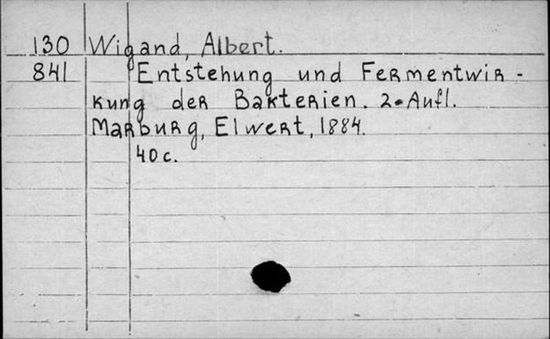 130 Wigand, Albert.
841 Entstehung und Fermentwir-
kung der Bakterien. 2. Aufl.
Marburg, Elwert, 1884.
40 c.